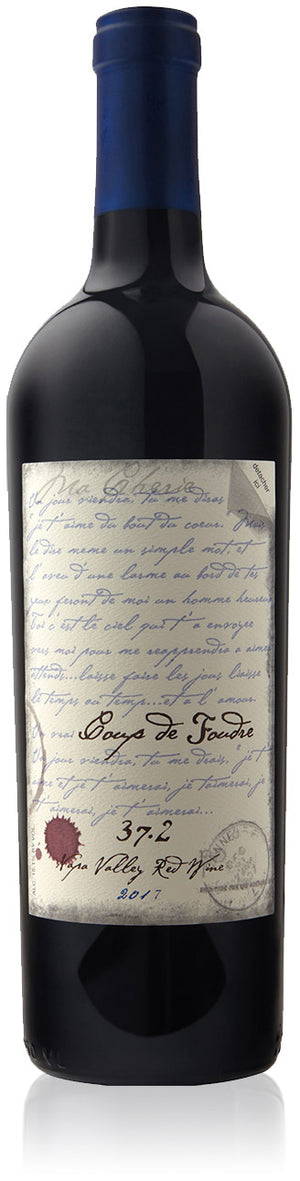 Ma Chérie
detacher
ici
Un jour viendra, tu me diras
"je t'aime du bout du coeur. Mais
le dire meme un simple mot, et
l'aveu d'une larme au bord de tes
yeux feront de moi un homme heureux
Toi c'est le ciel qui t'a envoyee
vers moi pour me reapprendre a aimer
attends...laisse faire les jours laisse
le temps au temps...et a l'amour.
Un vrai Coup de Foudre
Un jour viendra, tu me diras, "je t'
aime et je t'aimerai, je t'aimerai, je
t'aimerai, je t'aimerai...
37.2
Napa Valley Red Wine
2017